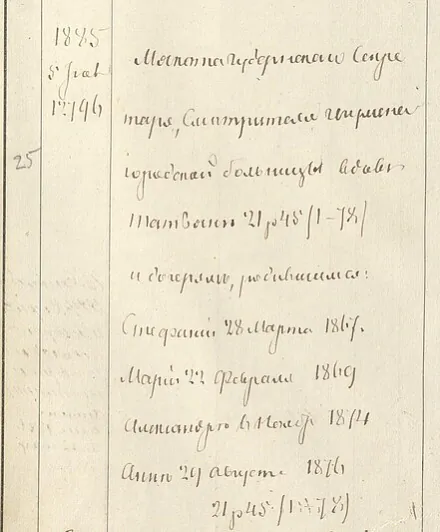 1885
5 Янв
12796
25
губернскаго Секре
таря, Смотрителя
городской больницы вдове
Татьянѣ 21 р 45 (1-78)
и дочерямъ, родившимся:
Стефаніи 28 Марта 1867.
Маріи 22 Февраля 1869
Александрѣ 6 Нояб 1874
Аннѣ 29 Августа 1876
21 р 45 (1-78)